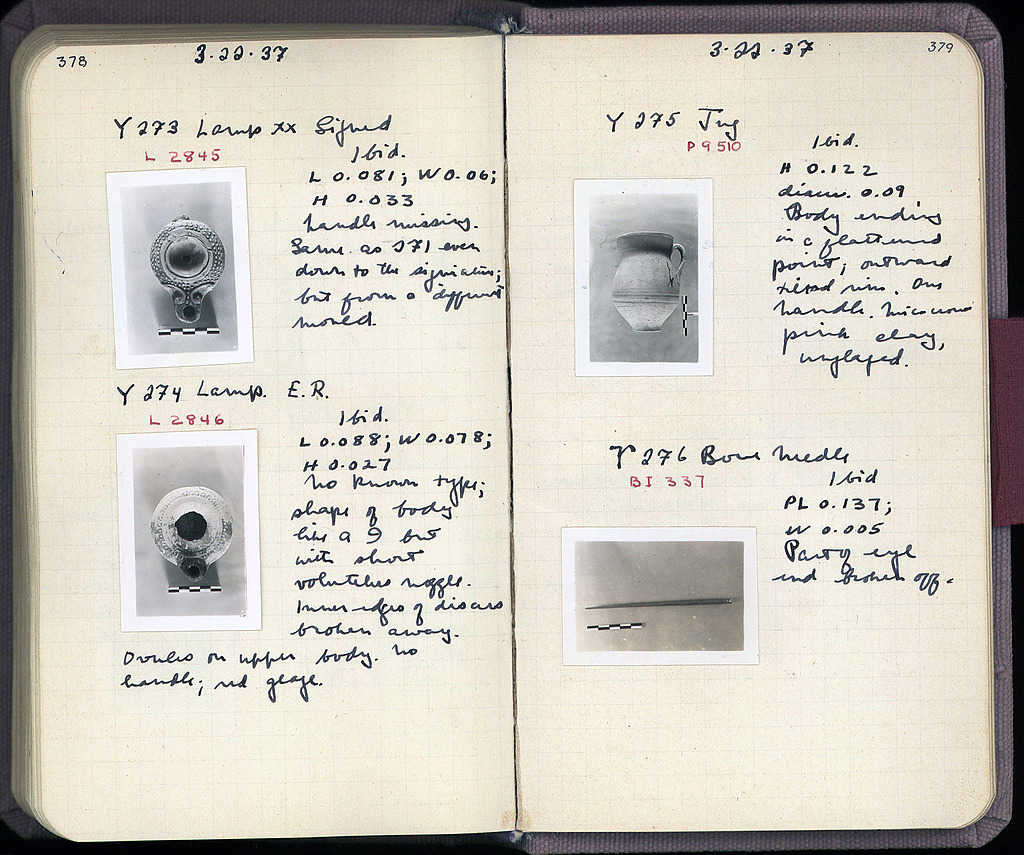 378
3·22·37
Y 273 Lamp xx Signed
L 2845
Ibid.
L 0.081; W 0.06;
H 0.033
handle missing.
Same as 271 even
down to the signature;
but from a different
mould.
Y 274 Lamp. E.R.
L 2846
Ibid.
L 0.088; W 0.078;
H 0.027
No known type;
shape of body
like a 9 but
with short
volutelies noggle.
Inner edges of discus
broken away.
Ovules on upper body. No
handle; red glaze.
379
3·22·37
Y 275 Jug
P 9510
Ibid.
H 0.122
diam. 0.09
Body ending
in a flattened
point; outward
tilted rim. One
handle. Micaceous
pink clay,
unglazed.
Y 276 Bone Needle
BI 337
Ibid
PL 0.137;
W 0.005
Part of eye
end broken off.